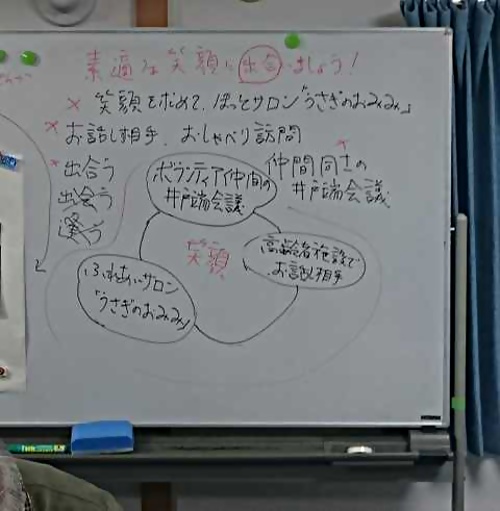 素適な笑顔に出合いましょう!
× 笑顔を求めて、ほっとサロン「うさぎのおみみ」
× お話し相手、おしゃべり訪問
× 出合う
出会う
逢う
ボランティア仲間の
井戸端会議
× 仲間同士の
井戸端会議
笑顔
高齢者施設で
お話し相手
ふれあいサロン
「うさぎのおみみ」